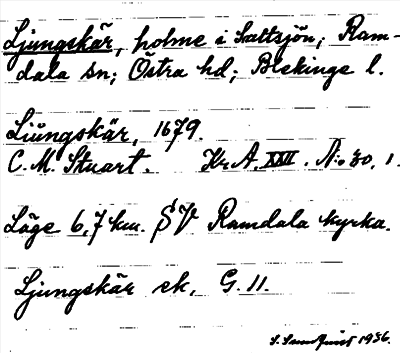 Ljungskär, holme i Saltsjön; Ram-
dala sn; Östra hd; Blekinge l.
Liüngskär, 1679.
C. M. Stuart. Kr A. XXII. N:o 30, 1.
Läge 6,7 km. SV Ramdala kyrka.
Ljungskär ek, G. 11.
1936.